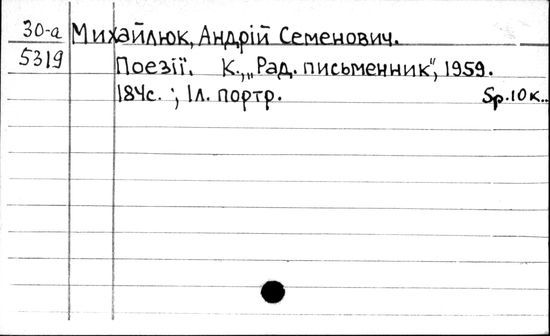 30-а Михайлюк, Андрій Семенович.
5319 Поезії. К., „Рад. письменник", 1959.
184с.; 1л. портр. 5р.10к.